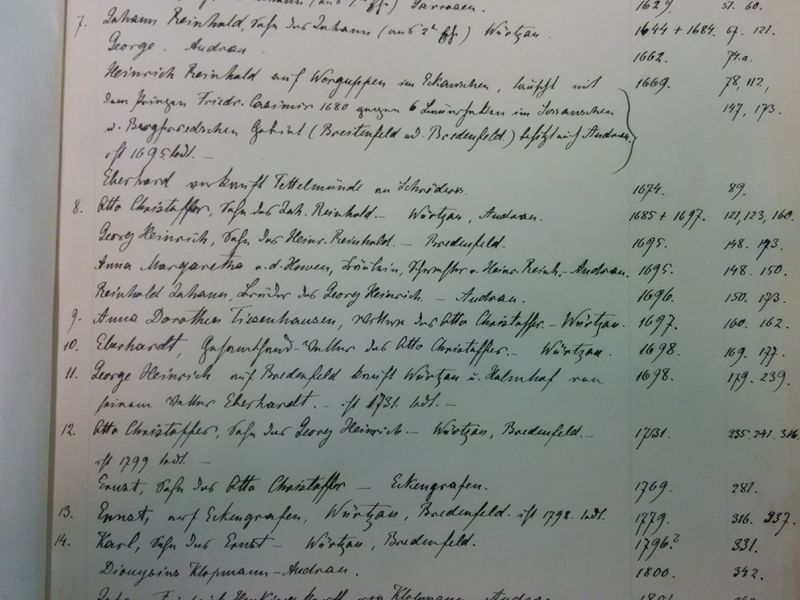 1629. 51. 60.
7. Johann Reinhold, Sohn des Johann (aus 2r Ehe) Würtzau. 1644 + 1684. 67. 121.
George. Audrau. 1662. 74.a.
Heinrich Reinhold auf Worguppen im Eckauschen, tauscht mit 1669. 78, 112,
dem Prinzen Friedr. Casimir 1680 gegen 6 im 147, 173.
u. Gebiet (Breitenfeld od. Bredenfeld) besitzt auch Audrau.
ist 1695 todt. —
Eberhard verkauft Tettelmünde an Schröders. 1674. 89.
8. Otto Christoffer, Sohn des Joh. Reinhold. — Würtzau, Audrau. 1685 + 1697. 121, 123, 160.
Georg Heinrich, Sohn des Heinr. Reinhold. — Bredenfeld. 1695. 148. 173.
Anna Margaretha v. d. Howen, Fräulein, Schwester v. Heinr. Reinh. — Audrau. 1695. 148. 150.
Reinhold Johann, Bruder des Georg Heinrich — Audrau. 1696. 150. 173.
9. Anna Dorothea Tiesenhausen, Wittwe des Otto Christoffer. — Würtzau. 1697. 160. 162.
10. Eberhardt, Gesamthand-Vetter des Otto Christoffer. — Würtzau. 1698. 169. 177.
11. George Heinrich auf Bredenfeld kauft Würtzau u. Halmhof von 1698. 179. 239.
seinem Vetter Eberhardt. — ist 1731 todt. —
12. Otto Christoffer, Sohn des Georg Heinrich. — Würtzau, Bredenfeld. — 1731. 235. 241. 316.
ist 1799 todt. —
Ernst, Sohn des Otto Christoffer — Eckengrafen. 1769. 281.
13. Ernst, auf Eckengrafen, Würtzau, Bredenfeld. ist 1798. todt. 1779. 316. 337.
14. Karl, Sohn des Ernst — Würtzau, Bredenfeld. 1796.? 331.
Dionysius Klopmann — Audrau. 1800. 342.